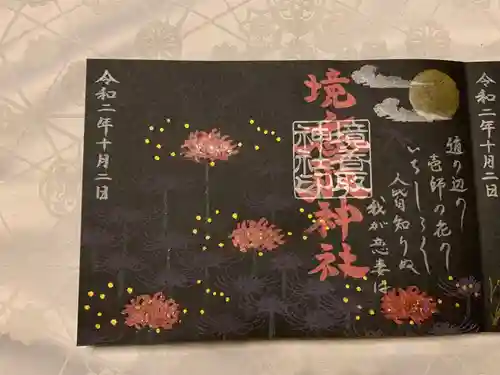 令和二年十月二日
道の辺の
壱師の花の
いちしろく
人皆知りぬ
我が恋妻は
境香取神社
境香取
神社
令和二年十月二日